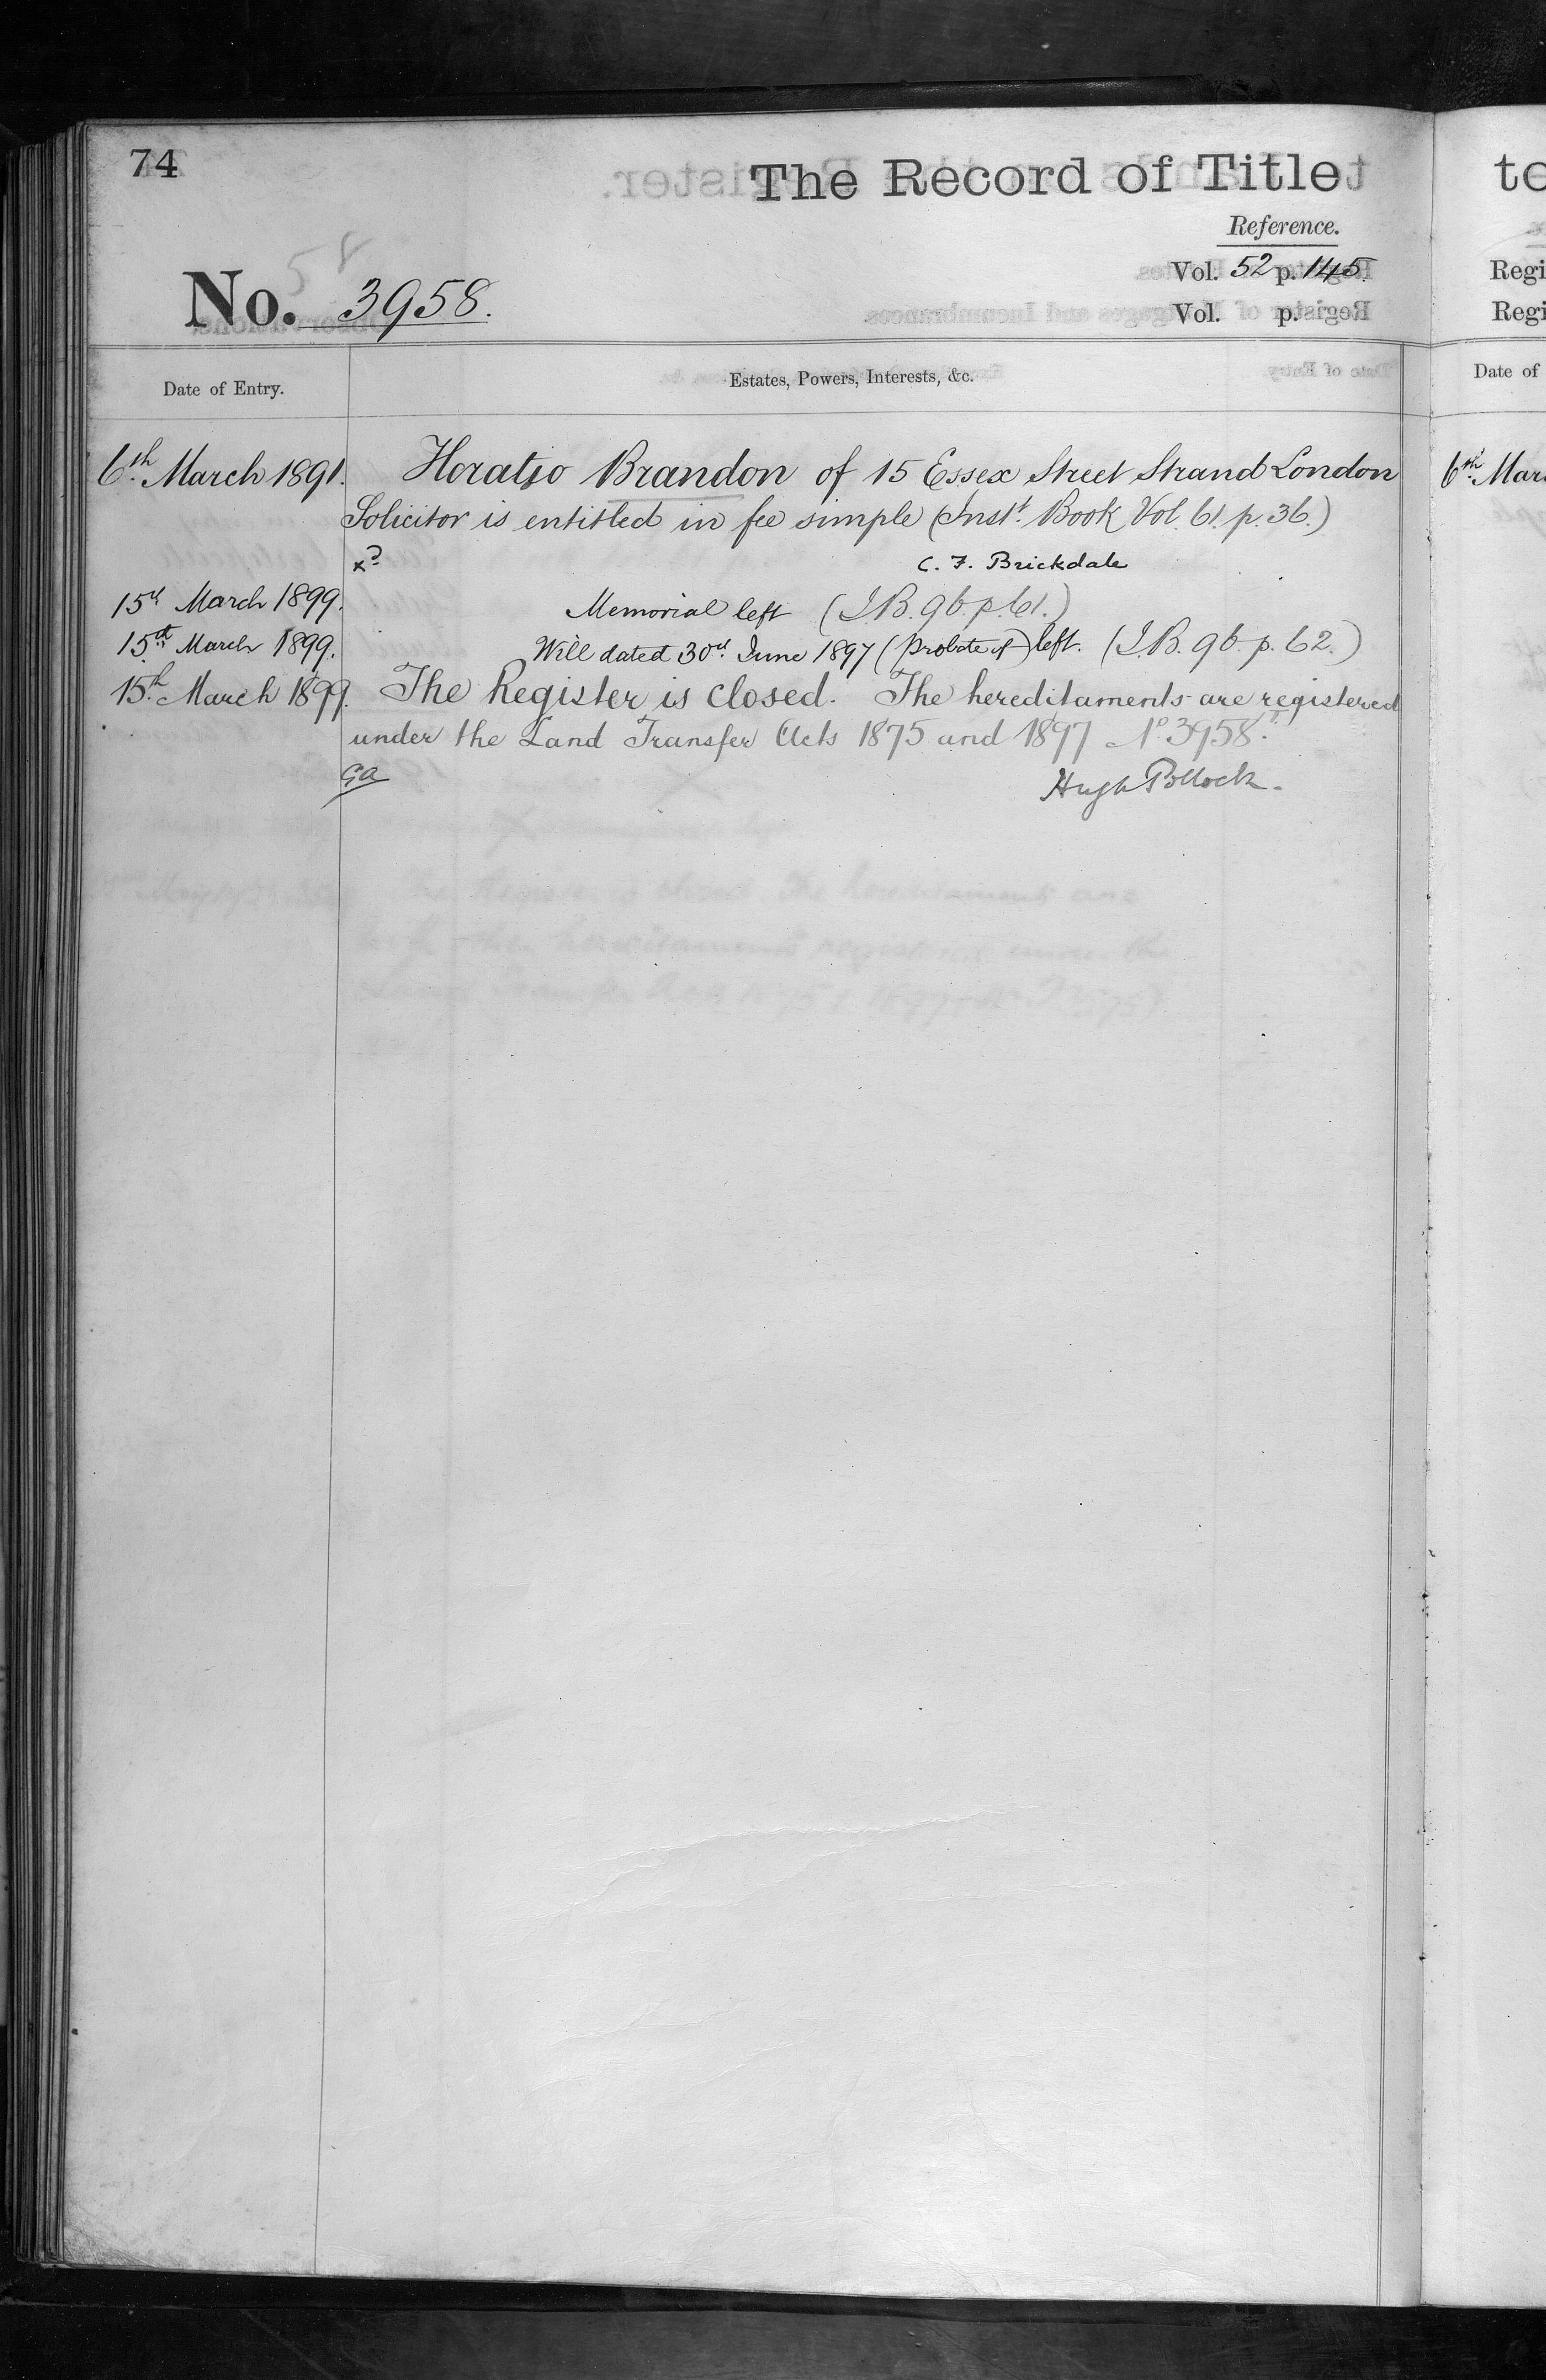 74
The Record of Title
Reference.
58
No. 3958.
Vol. 52 p. 145.
Vol. p.
Date of Entry.
Estates, Powers, Interests, &c.
6th March 1891. Horatio Brandon of 15 Essex Street Strand London
Solicitor is entitled in fee simple (Inst. Book Vol. 61. p. 36.)
C. F. Brickdale
15th March 1899. Memorial left (I.B. 96. p. 61.)
15th March 1899. Will dated 30th June 1897 (Probate of) left. (I.B. 96. p. 62.)
15th March 1899. The Register is closed. The hereditaments are registered
under the Land Transfer Acts 1875 and 1897 No 3958.
Hugh Pollock.
to
Regi
Regi
Date of
6th Mar